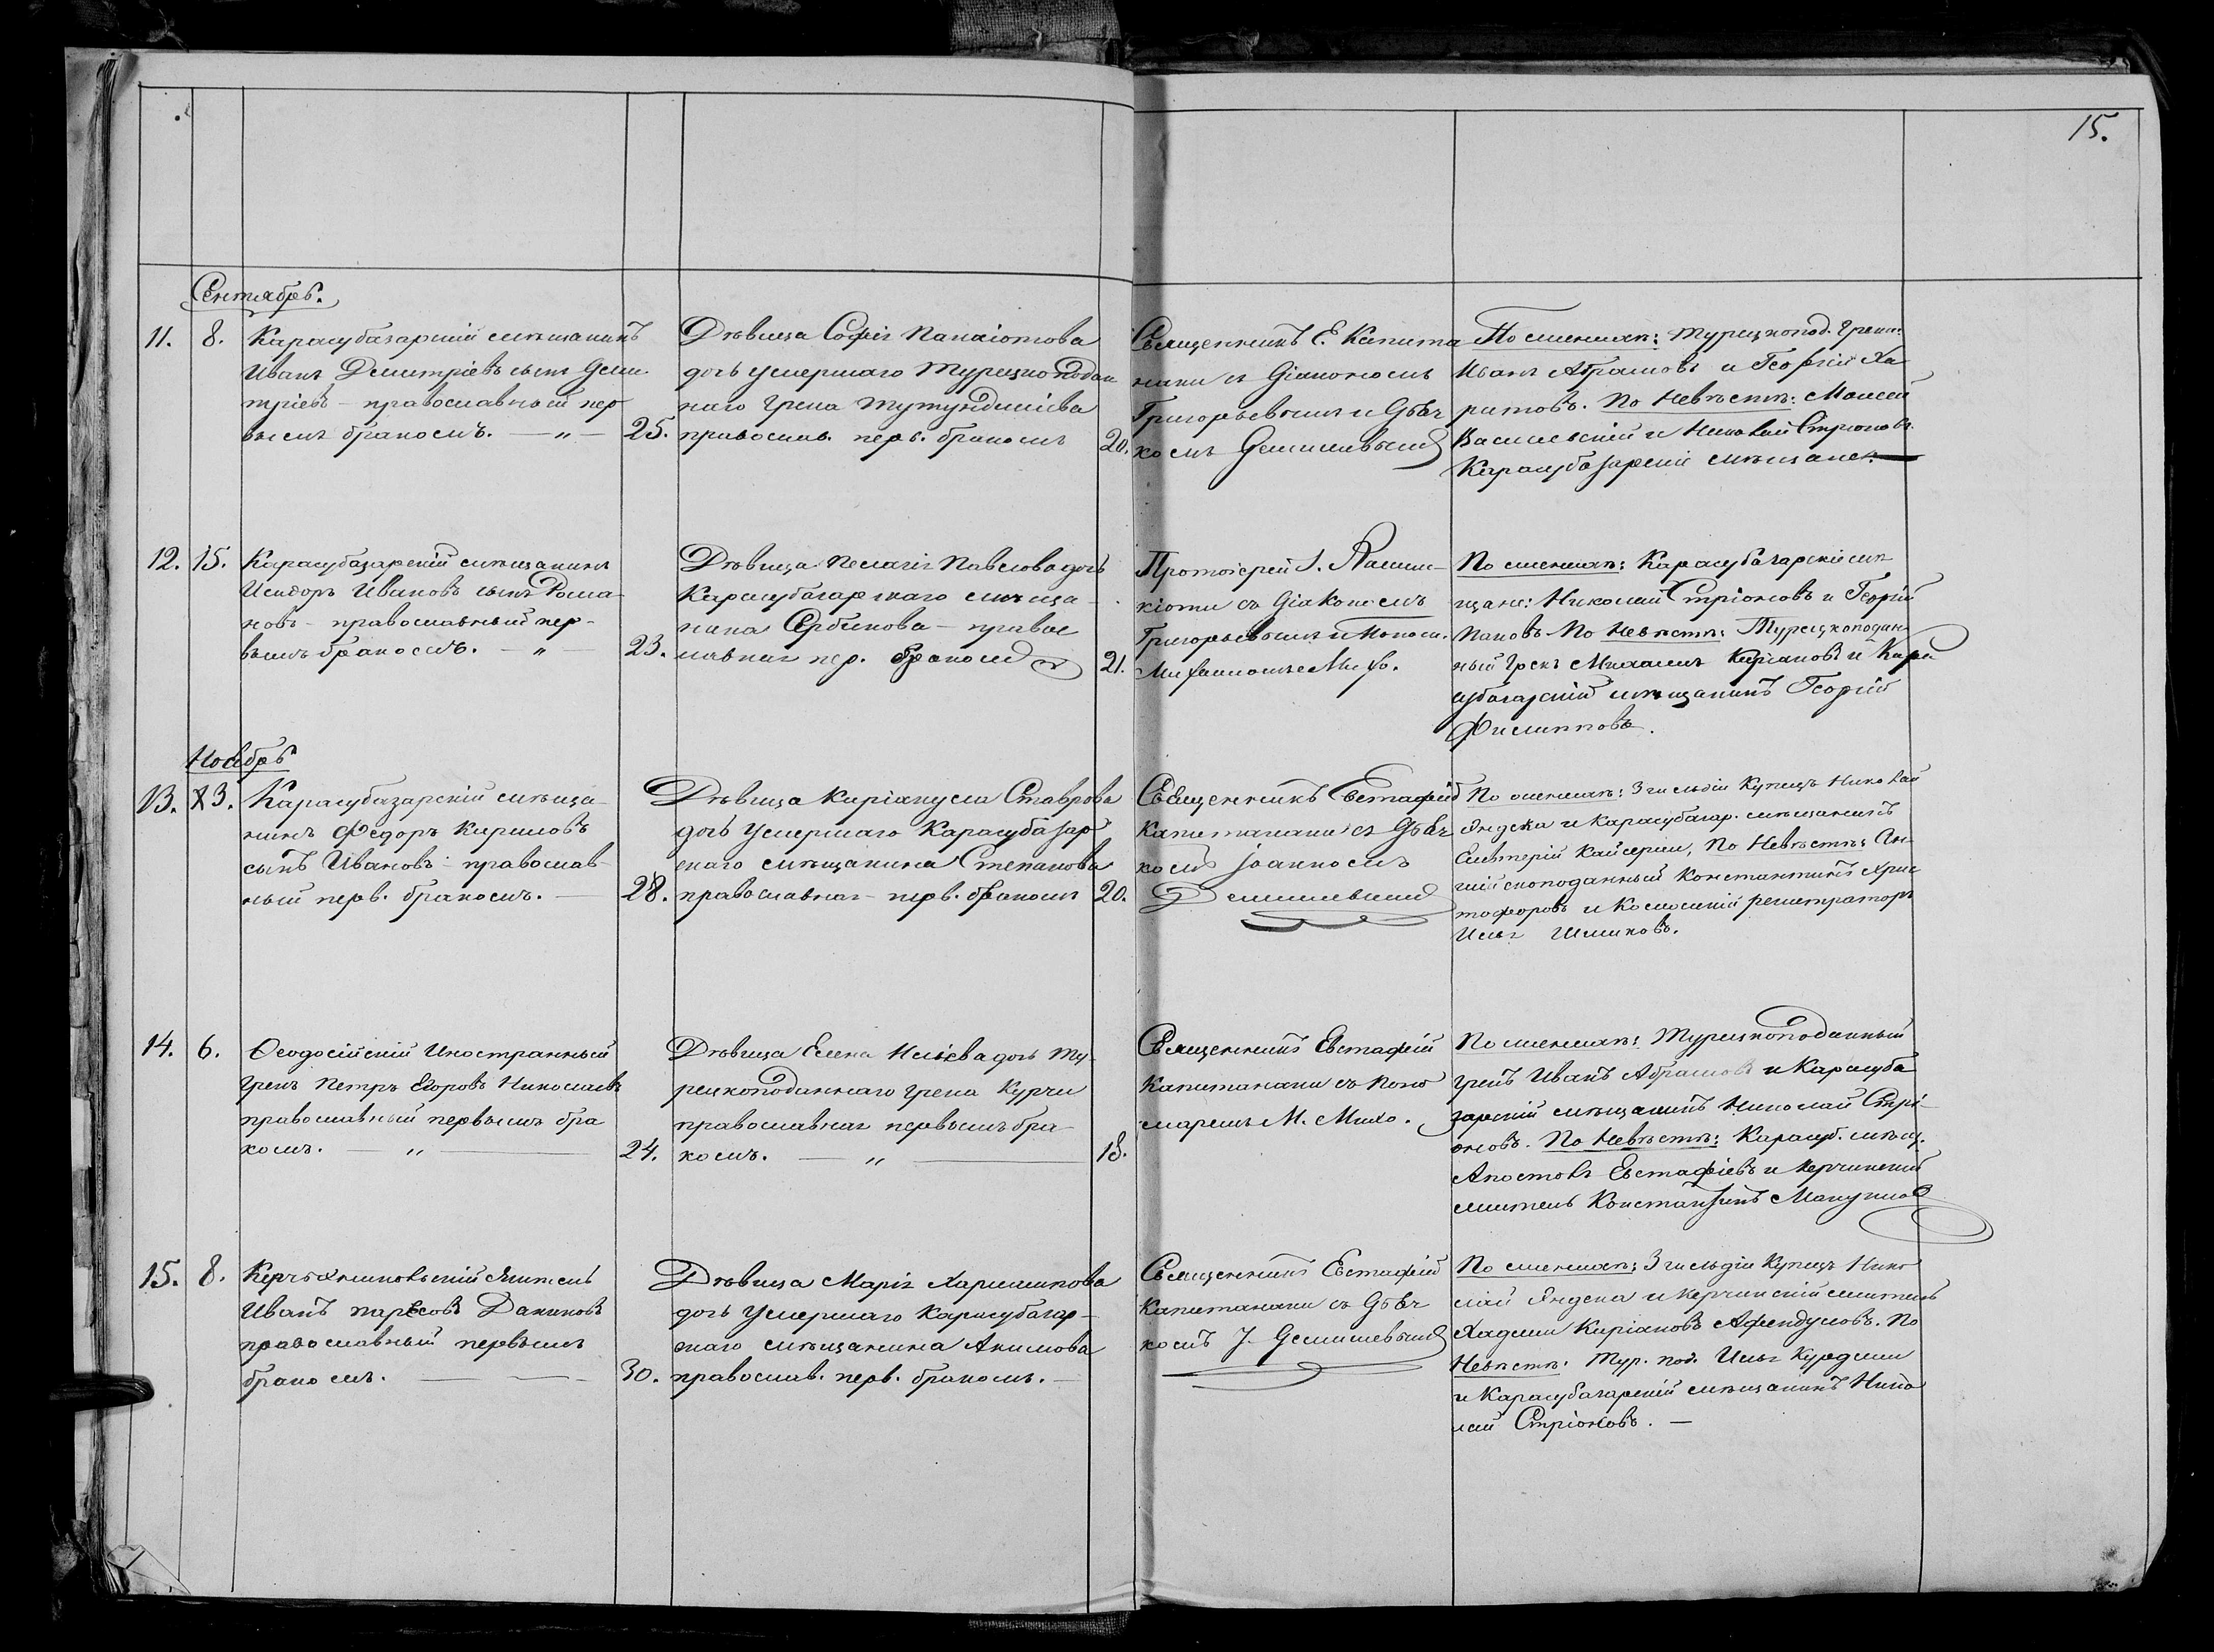 15.
Сентябрь.
11. 8. Карасубазарскій мѣщанинъ
Иванъ Дмитріевъ сынъ Дми-
тріевъ - православный пер
вымъ бракомъ. — „ — 25.
Дѣвица Софія Панаіотова
дочь умершаго Турецкоподан
наго Грека
православ. перв. бракомъ 20.
Священникъ Е. Капита
наки съ Діакономъ
Григорьевымъ и Дьяч
комъ
По женихѣ: Турецкопод. Греки:
Иванъ Абрамовъ и Георгій Ха
ритовъ. По Невѣстѣ: Моисей
Васильевскій и Николай Стріоновъ
Карасубазарскіе мѣщане.
12. 15. Карасубазарскій мѣщанинъ
Исидоръ Ивановъ сынъ Рома-
новъ - православный пер-
вымъ бракомъ. — „ — 23.
Дѣвица Пелагія Павлова дочь
Карасубазарскаго мѣща-
нина Сербинова - правос
лавная пер. бракомъ 21.
Протоіерей І.
съ Діакономъ
Григорьевымъ и
По женихѣ: Карасубазарскій мѣ
щане: Николай Стріоновъ и Георгій
Пановъ По Невѣстѣ: Турецкоподан-
ный Грекъ Михаилъ Киріановъ и Кара
субазарскій мѣщанинъ Георгій
Филипповъ.
Ноябрь
13. 3. Карасубазарскій мѣща-
нинъ Федоръ Кириловъ
сынъ Ивановъ - православ-
ный перв. бракомъ. — 28.
Дѣвица Киріакула Ставрова
дочь умершаго Карасубазар
скаго мѣщанина Степанова
православная - перв. бракомъ 20.
Священникъ Евстафій
Капитанаки съ Дьяч
комъ Іоанномъ
По женихѣ: 3 гильдіи Купецъ Николай
Яндека и Карасубазар. мѣщанинъ
Елевтерій Кайсерли, По Невѣстѣ: Ан-
глійскоподанный Константинъ Хрис
тофоровъ и Колежскій регистраторъ
Илья Шишковъ.
14. 6. Ѳеодосійскій Иностранный
Грекъ Петръ Егоровъ Николаевъ
православный первымъ бра
комъ. — „ — 24.
Дѣвица Елена Ильева дочь Ту-
рецкоподаннаго Грека Курчи
православная первымъ бра-
комъ. — „ — 18.
Священникъ Евстафій
Капитанаки съ Поно
маремъ М. Михо.
По женихѣ: Турецкоподанный
Грекъ Иванъ Абрамовъ и Карасуба
зарскій мѣщанинъ Николай Стрі-
оновъ. По Невѣстѣ: Карасуб. мѣщ.
Апостолъ Евстафіевъ и Керчинскій
житель Константинъ
15. 8. житель
Иванъ Даниловъ
православный первымъ
бракомъ. — — 30.
Дѣвица Марія Харлампова
дочь умершаго Карасубазар-
скаго мѣщанина Акимова
православ. перв. бракомъ. —
Священникъ Евстафій
Капитанаки съ Дьяч
комъ І.
По женихѣ: 3 гильдіи Купецъ Нико
лай Яндека и Керчинскій житель
Хаджи Киріаковъ Афендуловъ. По
Невѣстѣ: Тур. под. Илья Курджи
и Карасубазарскій мѣщанинъ Нико
лай Стріоновъ. —